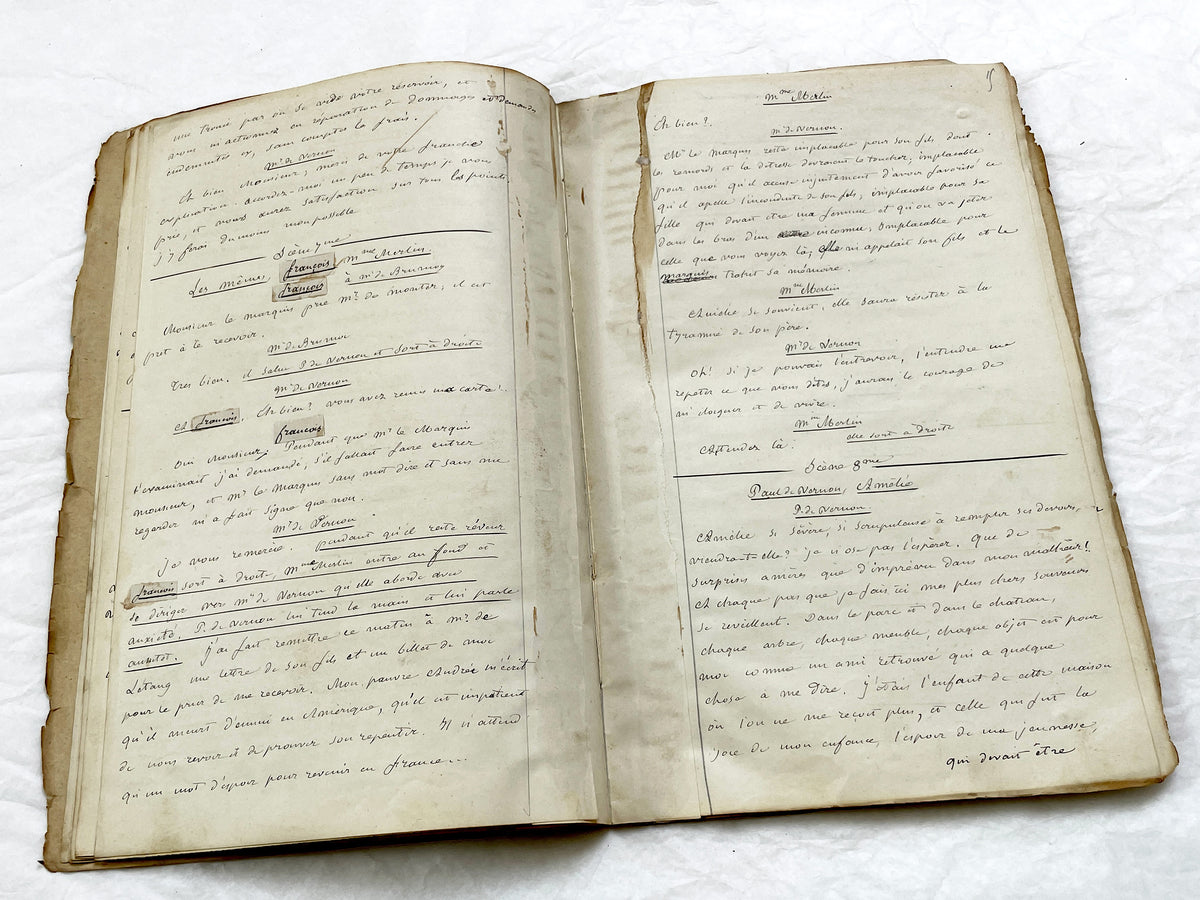 une trouée par où se vide votre réservoir, et
vous actionner en réparation de dommages et demandes
indemnités &, sans compter les frais.
Mr de Vernon
Eh bien Monsieur, merci de votre franche
explication. accordez-moi un peu de temps je vous
prie, et vous aurez satisfaction sur tous les points.
j'y ferai du moins mon possible
Scène 7me
Les mêmes, françois, Mme Merlin.
françois à Mr de Brumoy
Monsieur le marquis prie Mr de monter; il est
prêt à le recevoir.
Mr de Brumoy
Très bien. il salue P. de Vernon et sort à droite
Mr de Vernon
Et françois. Eh bien? vous avez remis ma carte?
françois
Oui Monsieur, Pendant que Mr le Marquis
l'examinait j'ai demandé, s'il fallait faire entrer
monsieur, et Mr le Marquis sans mot dire et sans me
regarder m'a fait signe que non.
Mr de Vernon
Je vous remercie. Pendant qu'il reste rêveur
françois sort à droite, Mme Merlin entre au fond et
se diriger vers Mr de Vernon qu'elle aborde avec
anxiété, P. de Vernon lui tend la main et lui parle
aussitôt. J'ai fait remettre ce matin à Mr de
Létang une lettre de son fils et un billet de moi
pour le prier de me recevoir. Mon pauvre André m'écrit
qu'il meurt d'ennui en Amérique, qu'il est impatient
de nous revoir et de prouver son repentir. Il n'attend
qu'un mot d'espoir pour revenir en france...
15
Mme Merlin
Eh bien?
Mr de Vernon.
Mr le Marquis reste implacable pour son fils, dont
les remords et la détresse devraient le toucher; implacable
pour moi qu'il accuse injustement d'avoir favorisé ce
qu'il apelle l'inconduite de son fils, implacable pour sa
fille qui devait être ma femme et qu'on va jeter
dans les bras d'un inconnu; Implacable pour
celle que vous voyez là; elle m'appelait son fils et le
marquis trahit sa mémoire.
Mme Merlin
Amélie se souvient, elle saura résister à la
tyrannie de son père.
Mr de Vernon
Oh! si je pouvais l'entrevoir, l'entendre me
répéter ce que vous dites, j'aurais le courage de
m'éloigner et de vivre.
Mme Merlin
Attendez là. elle sort à droite
Scène 8me
Paul de Vernon, Amélie
P. de Vernon
Amélie si sévère, si scrupuleuse à remplir ses devoirs,
viendra-t-elle? je n'ose pas l'espérer. Que de
surprises amères que d'imprévu dans mon malheur!
A chaque pas que je fais ici mes plus chers souvenirs
se réveillent. Dans le parc et dans le chateau,
chaque arbre, chaque meuble, chaque objet est pour
moi comme un ami retrouvé qui a quelque
chose à me dire. J'étais l'enfant de cette maison
où l'on ne me reçoit plus, et celle qui fut la
joie de mon enfance, l'espoir de ma jeunesse,
qui devait être